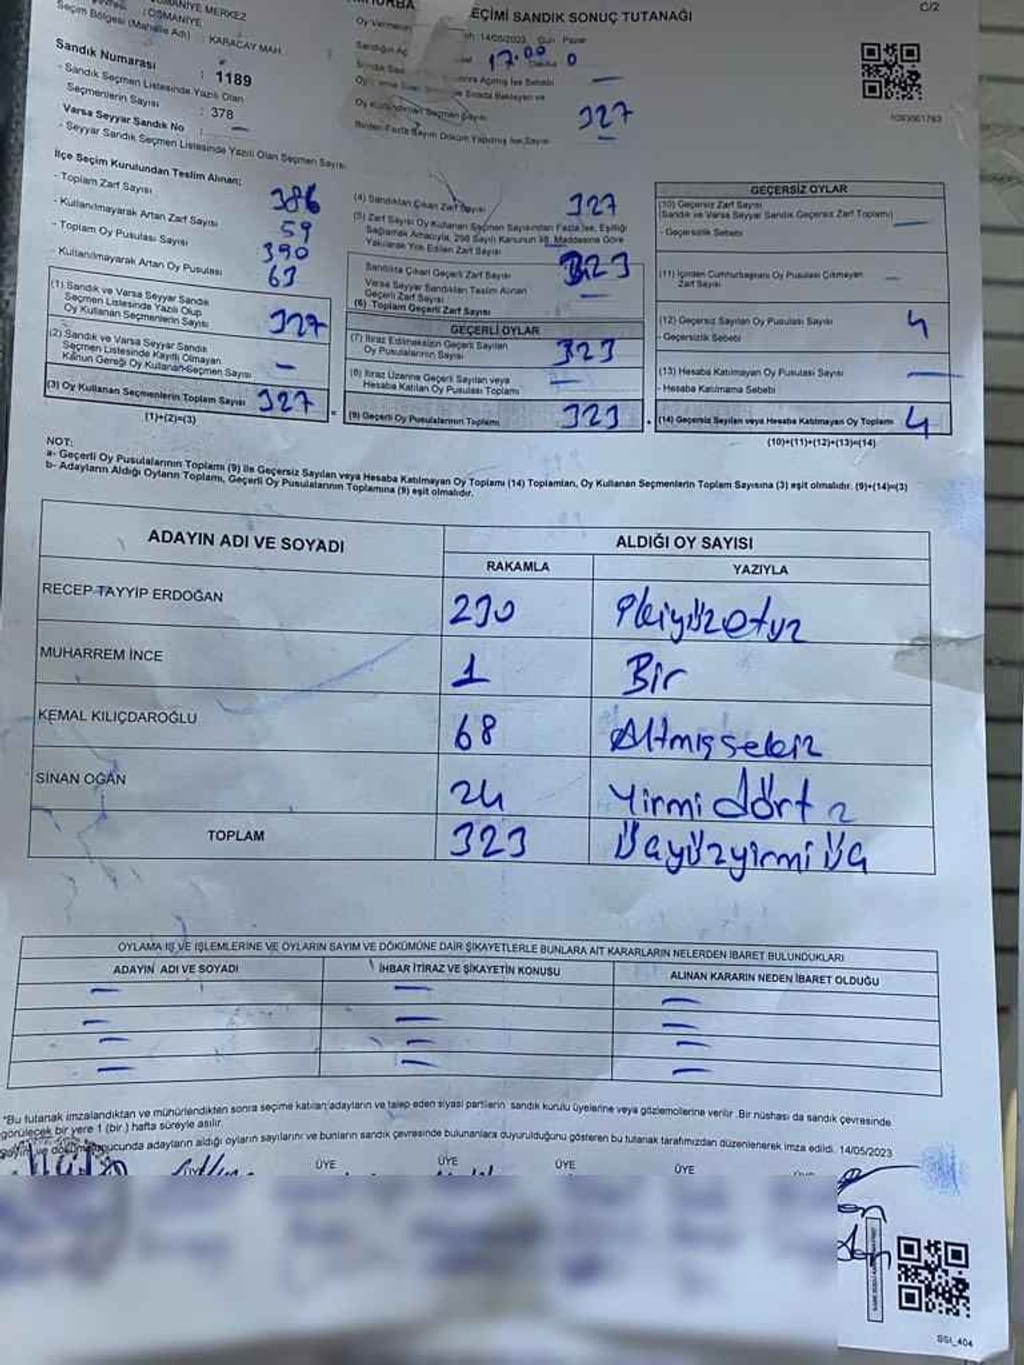 MANİYE MERKEZ
: OSMANİYE
Seçim Bölgesi (Mahalle Adı) : KARACAY MAH
EÇİMİ SANDIK SONUÇ TUTANAĞI
C/2
14/05/2023 Gün Pazar
17.00 0
Sandık Numarası : 1189
- Sandık Seçmen Listesinde Yazılı Olan
Seçmenlerin Sayısı : 378
Varsa Seyyar Sandık No : —
- Seyyar Sandık Seçmen Listesinde Yazılı Olan Seçmen Sayısı
327
Birden Fazla Sayım Döküm Yapılmış İse Sayısı —
İlçe Seçim Kurulundan Teslim Alınan;
- Toplam Zarf Sayısı 386
- Kullanılmayarak Artan Zarf Sayısı 59
- Toplam Oy Pusulası Sayısı 390
- Kullanılmayarak Artan Oy Pusulası 63
(1) Sandık ve Varsa Seyyar Sandık
Seçmen Listesinde Yazılı Olup
Oy Kullanan Seçmenlerin Sayısı 327
(2) Sandık ve Varsa Seyyar Sandık
Seçmen Listesinde Kayıtlı Olmayan
Kanun Gereği Oy Kullanan Seçmen Sayısı —
(3) Oy Kullanan Seçmenlerin Toplam Sayısı 327
(1)+(2)=(3)
(4) Sandıktan Çıkan Zarf Sayısı 327
(5) Zarf Sayısı Oy Kullanan Seçmen Sayısından Fazla İse, Eşitliği
Sağlamak Amacıyla, 298 Sayılı Kanunun 98. Maddesine Göre
Yakılarak Yok Edilen Zarf Sayısı
Sandıkta Çıkan Geçerli Zarf Sayısı 323
Varsa Seyyar Sandıktan Teslim Alınan
Geçerli Zarf Sayısı —
(6) Toplam Geçerli Zarf Sayısı
GEÇERLİ OYLAR
(7) İtiraz Edilmeksizin Geçerli Sayılan
Oy Pusulalarının Sayısı 323
(8) İtiraz Üzerine Geçerli Sayılan veya
Hesaba Katılan Oy Pusulası Toplamı —
(9) Geçerli Oy Pusulalarının Toplamı 323
GEÇERSİZ OYLAR
(10) Geçersiz Zarf Sayısı
(Sandık ve Varsa Seyyar Sandık Geçersiz Zarf Toplamı) —
- Geçersizlik Sebebi
(11) İçinden Cumhurbaşkanı Oy Pusulası Çıkmayan
Zarf Sayısı —
(12) Geçersiz Sayılan Oy Pusulası Sayısı 4
- Geçersizlik Sebebi
(13) Hesaba Katılmayan Oy Pusulası Sayısı —
- Hesaba Katılmama Sebebi
(14) Geçersiz Sayılan veya Hesaba Katılmayan Oy Toplamı 4
(10)+(11)+(12)+(13)=(14)
NOT:
a- Geçerli Oy Pusulalarının Toplamı (9) ile Geçersiz Sayılan veya Hesaba Katılmayan Oy Toplamı (14) Toplamları, Oy Kullanan Seçmenlerin Toplam Sayısına (3) eşit olmalıdır. (9)+(14)=(3)
b- Adayların Aldığı Oyların Toplamı, Geçerli Oy Pusulalarının Toplamına (9) eşit olmalıdır.
ADAYIN ADI VE SOYADI
ALDIĞI OY SAYISI
RAKAMLA YAZIYLA
RECEP TAYYİP ERDOĞAN 230 ikiyüzotuz
MUHARREM İNCE 1 Bir
KEMAL KILIÇDAROĞLU 68 Altmışsekiz
SİNAN OĞAN 24 Yirmi dört
TOPLAM 323 Üçyüzyirmi üç
OYLAMA İŞ VE İŞLEMLERİNE VE OYLARIN SAYIM VE DÖKÜMÜNE DAİR ŞİKAYETLERLE BUNLARA AİT KARARLARIN NELERDEN İBARET BULUNDUKLARI
ADAYIN ADI VE SOYADI İHBAR İTİRAZ VE ŞİKAYETİN KONUSU ALINAN KARARIN NEDEN İBARET OLDUĞU
— — —
— — —
— — —
— — —
*Bu tutanak imzalandıktan ve mühürlendikten sonra seçime katılan adayların ve talep eden siyasi partilerin sandık kurulu üyelerine veya gözlemcilerine verilir. Bir nüshası da sandık çevresinde
görülecek bir yere 1 (bir) hafta süreyle asılır.
Sayım ve döküm sonucunda adayların aldığı oyların sayılarını ve bunların sandık çevresinde bulunanlara duyurulduğunu gösteren bu tutanak tarafımızdan düzenlenerek imza edildi. 14/05/2023
ÜYE ÜYE ÜYE ÜYE
SSI_404